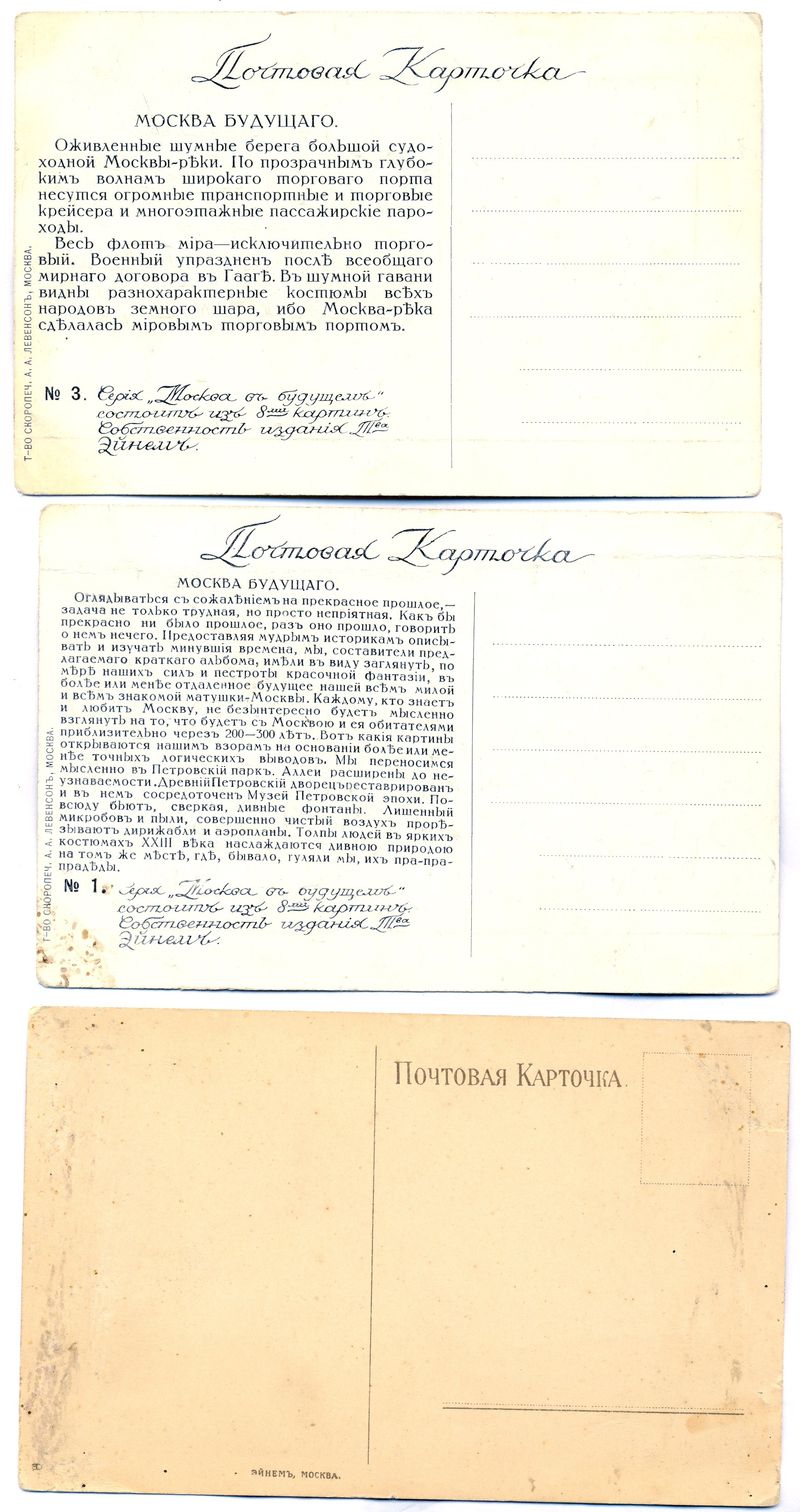 Почтовая Карточка
МОСКВА БУДУЩАГО.
Оживленные шумные берега большой судо-
ходной Москвы-рѣки. По прозрачнымъ глубо-
кимъ волнамъ широкаго торговаго порта
несутся огромные транспортные и торговые
крейсера и многоэтажные пассажирскіе паро-
ходы.
Весь флотъ міра—исключительно торго-
вый. Военный упраздненъ послѣ всеобщаго
мирнаго договора въ Гаагѣ. Въ шумной гавани
видны разнохарактерные костюмы всѣхъ
народовъ земного шара, ибо Москва-рѣка
сдѣлалась міровымъ торговымъ портомъ.
№ 3. Серія „Москва въ будущемъ“
состоитъ изъ 8ми картинъ.
Собственность изданія Тва
Эйнемъ.
Т-ВО СКОРОПЕЧ. А. А. ЛЕВЕНСОНЪ, МОСКВА.
Почтовая Карточка
МОСКВА БУДУЩАГО.
Оглядываться съ сожалѣніемъ на прекрасное прошлое,—
задача не только трудная, но просто непріятная. Какъ бы
прекрасно ни было прошлое, разъ оно прошло, говорить
о немъ нечего. Предоставляя мудрымъ историкамъ описы-
вать и изучать минувшія времена, мы, составители пред-
лагаемаго краткаго альбома, имѣли въ виду заглянуть, по
мѣрѣ нашихъ силъ и пестроты красочной фантазіи, въ
болѣе или менѣе отдаленное будущее нашей всѣмъ милой
и всѣмъ знакомой матушки-Москвы. Каждому, кто знаетъ
и любитъ Москву, не безынтересно будетъ мысленно
взглянуть на то, что будетъ съ Москвою и ея обитателями
приблизительно черезъ 200—300 лѣтъ. Вотъ какія картины
открываются нашимъ взорамъ на основаніи болѣе или ме-
нѣе точныхъ логическихъ выводовъ. Мы переносимся
мысленно въ Петровскій паркъ. Аллеи расширены до не-
узнаваемости. Древній Петровскій дворецъ реставрированъ
и въ немъ сосредоточенъ Музей Петровской эпохи. По-
всюду бьютъ, сверкая, дивные фонтаны. Лишенный
микробовъ и пыли, совершенно чистый воздухъ прорѣ-
зываютъ дирижабли и аэропланы. Толпы людей въ яркихъ
костюмахъ XXIII вѣка наслаждаются дивною природою
на томъ же мѣстѣ, гдѣ, бывало, гуляли мы, ихъ пра-пра-
прадѣды.
№ 1. Серія „Москва въ будущемъ“
состоитъ изъ 8ми картинъ.
Собственность изданія Тва
Эйнемъ.
Т-ВО СКОРОПЕЧ. А. А. ЛЕВЕНСОНЪ, МОСКВА.
ПОЧТОВАЯ КАРТОЧКА.
ЭЙНЕМЪ, МОСКВА.